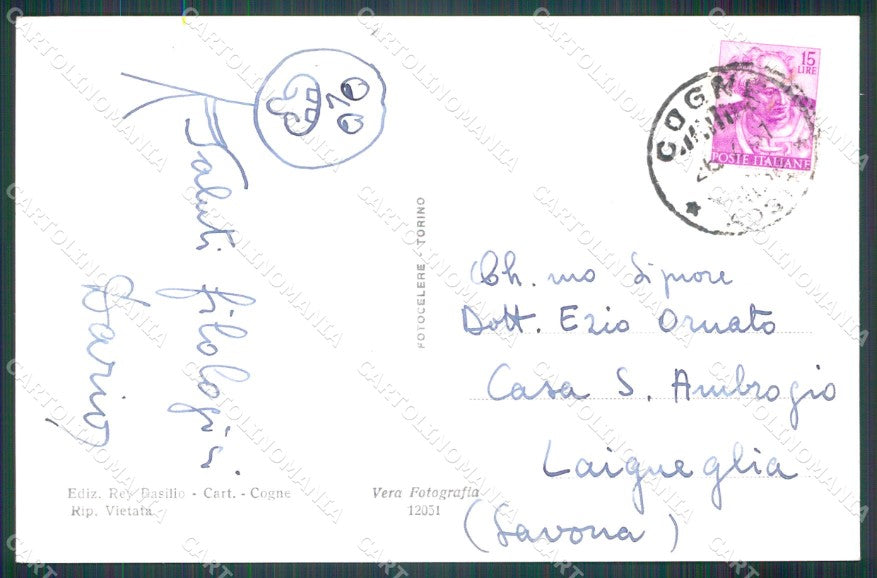 Saluti filologici.
Dario
FOTOCELERE - TORINO
Ediz. Rey Basilio - Cart. - Cogne
Rip. Vietata
Vera Fotografia
12051
15
LIRE
POSTE ITALIANE
COGNE
Ch.mo Signore
Dott. Ezio Ornato
Casa S. Ambrogio
Laigueglia
(Savona)
CARTOLINOMANIA